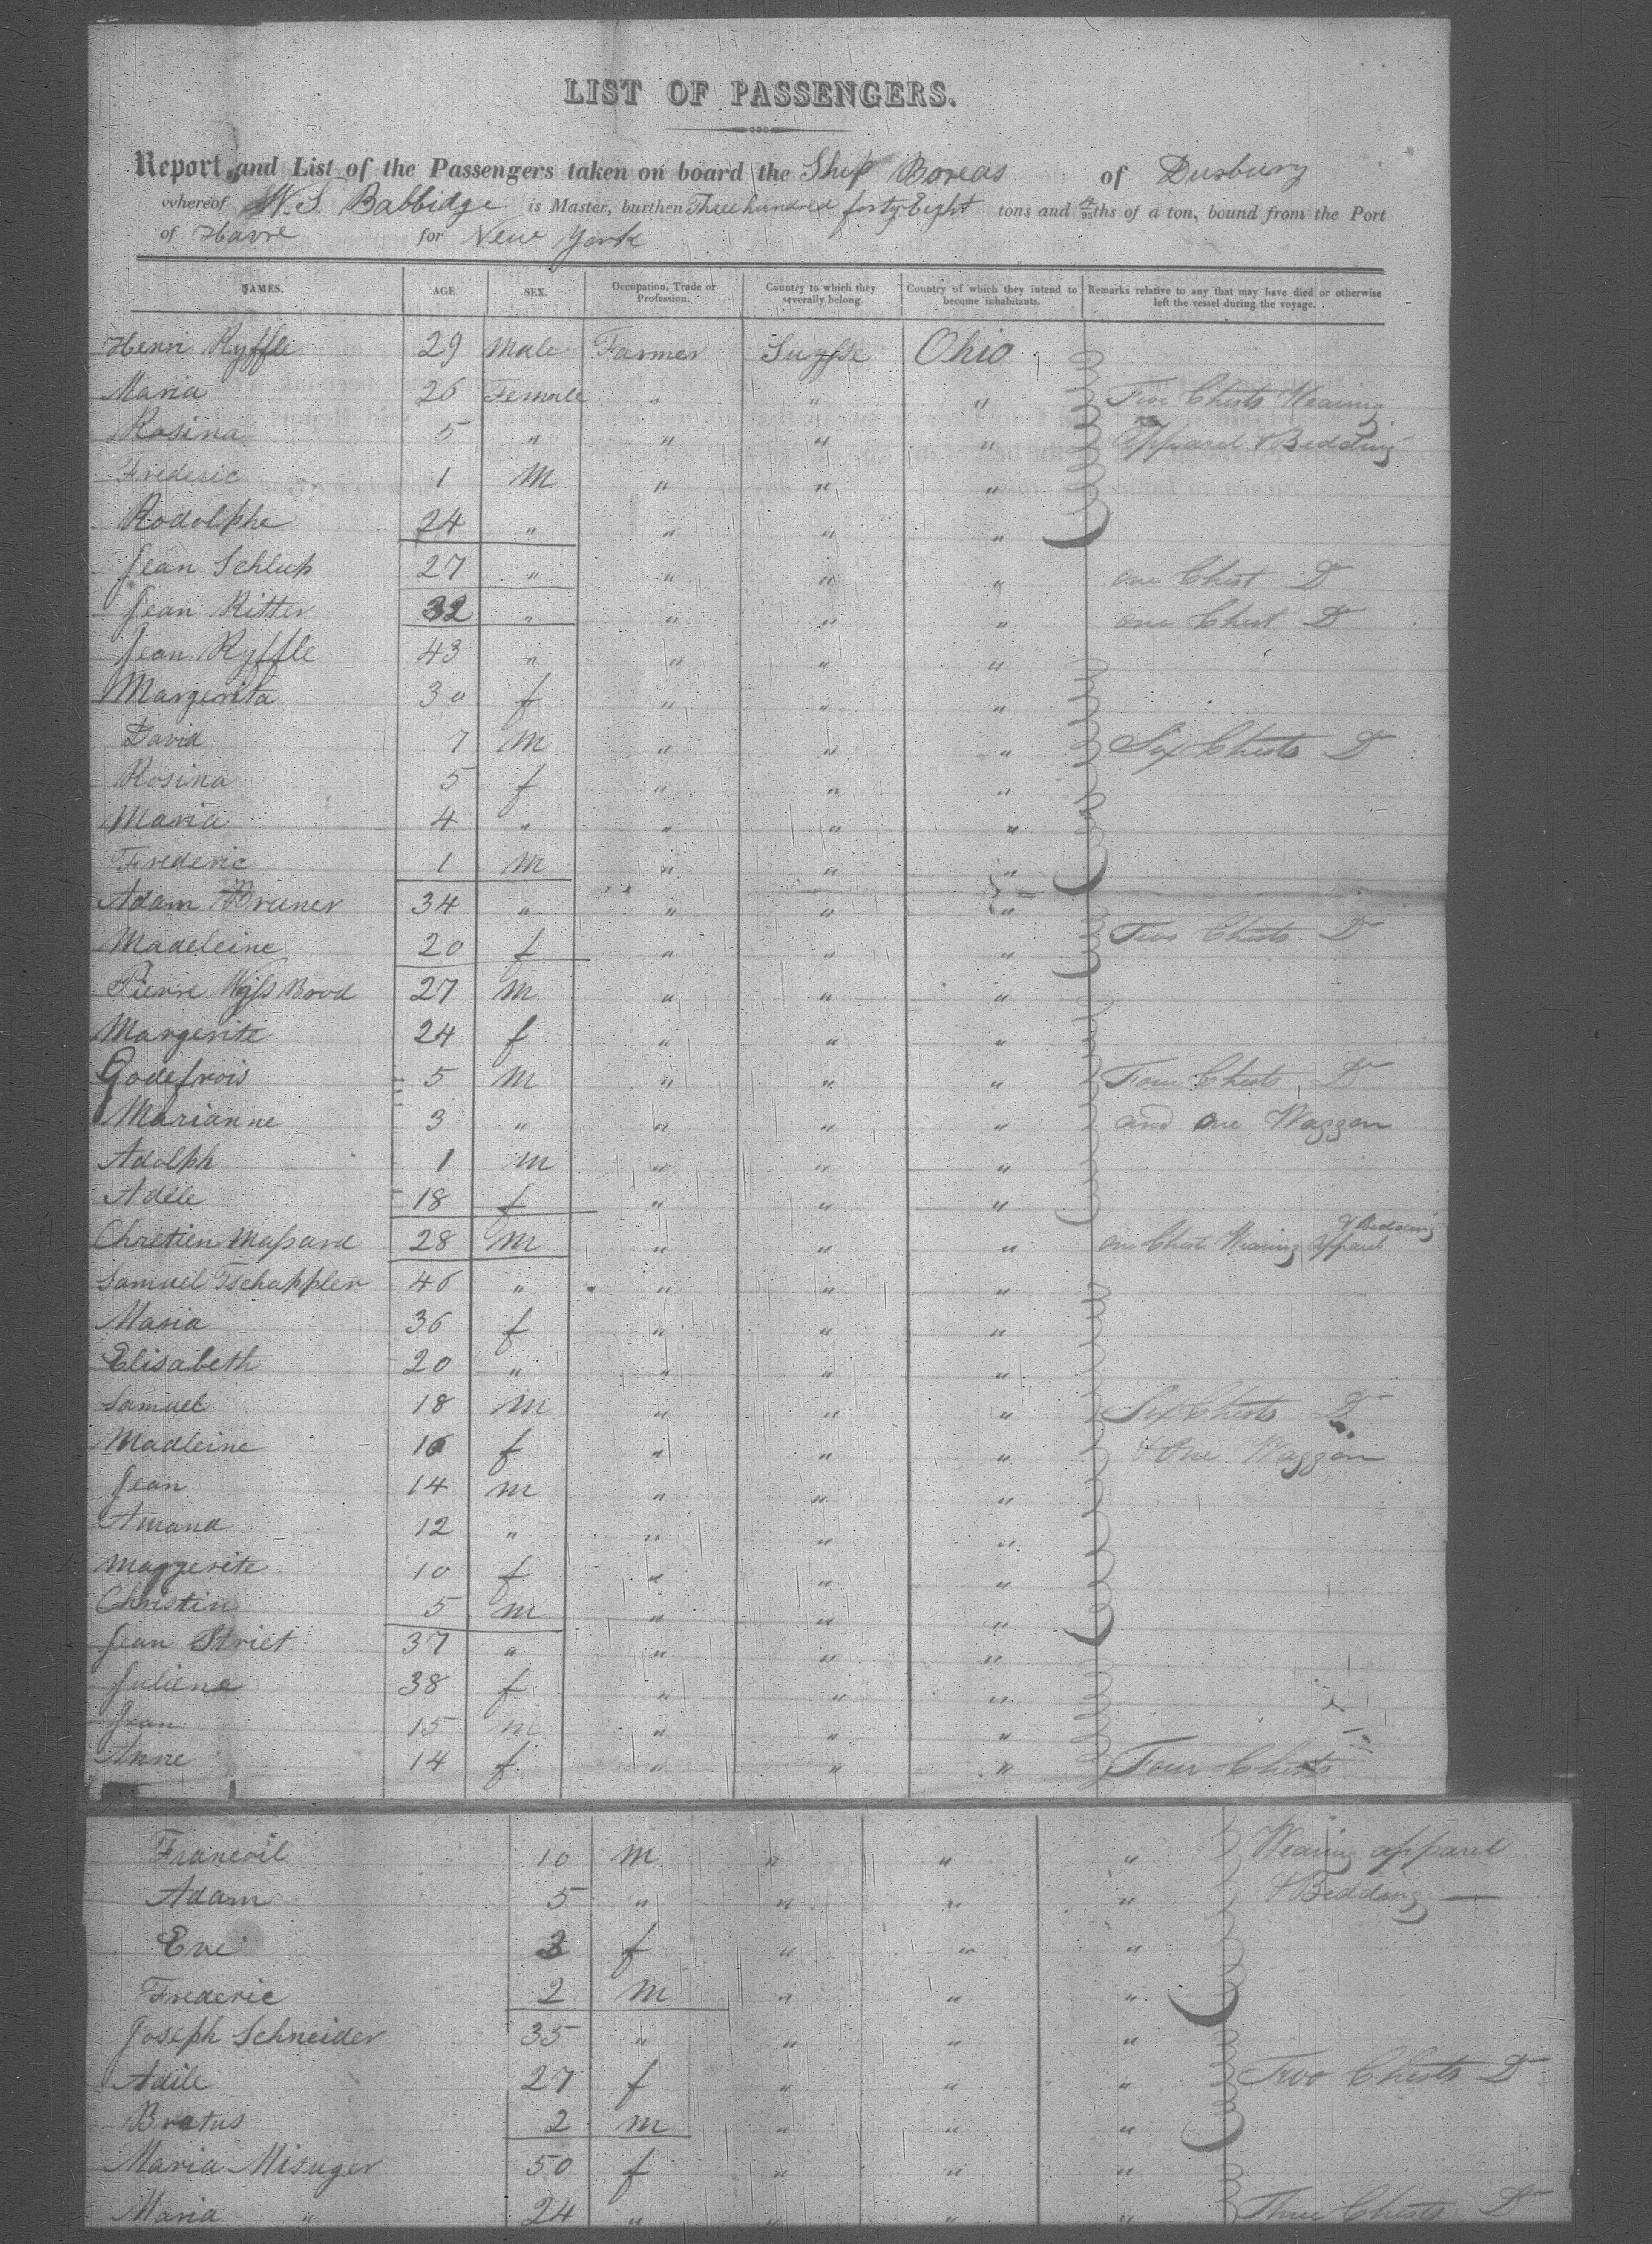 LIST OF PASSENGERS.
Report and List of the Passengers taken on board the Ship Boreas of Duxbury
whereof W. S. Babbidge is Master, burthen Three hundred forty Eight tons and 4/95ths of a ton, bound from the Port
of Havre for New York
NAMES. AGE. SEX. Occupation, Trade or Profession. Country to which they severally belong. Country of which they intend to become inhabitants. Remarks relative to any that may have died or otherwise left the vessel during the voyage.
Henri Ryffle 29 Male Farmer Suysse Ohio
Maria 26 Female " " " Five Chests Wearing
Rosina 5 " " " " Apparel & Bedding
Frederic 1 M " " "
Rodolphe 24 " " " "
Jean Schlup 27 " " " " one Chest Do
Jean Ritter 32 " " " " one Chest Do
Jean Ryffle 43 " " " "
Margerita 30 f " " "
David 7 M " " " Six Chests Do
Rosina 5 f " " "
Maria 4 " " " "
Frederic 1 M " " "
Adam Bruner 34 " " " "
Madeleine 20 f " " " Two Chests Do
Pierre Wyss Brod 27 M " " "
Margerite 24 f " " "
Godefrois 5 M " " " Four Chests Do
Marianne 3 " " " " and one Waggon
Adolph 1 M " " "
Adele 18 f " " "
Chretien Massard 28 M " " " one Chest Wearing apparel & Bedding
Samuel Tschappler 46 " " " "
Maria 36 f " " "
Elisabeth 20 " " " "
Samuel 18 M " " " Six Chests Do
Madleine 16 f " " " & One Waggon
Jean 14 M " " "
Amand 12 " " " "
Margerite 10 f " " "
Christin 5 M " " "
Jean Striet 37 " " " "
Juliena 38 f " " "
Jean 15 M " " "
Anne 14 f " " " Four Chests
10 M " " " Wearing apparel
Adam 5 " " " " & Bedding
Eve 3 f " " "
Frederic 2 M " " "
Joseph Schneider 35 " " " "
Adile 27 f " " " Two Chests Do
Bratus 2 M " " "
Maria Misuger 50 f " " "
Maria " 24 " " " " Three Chests Do